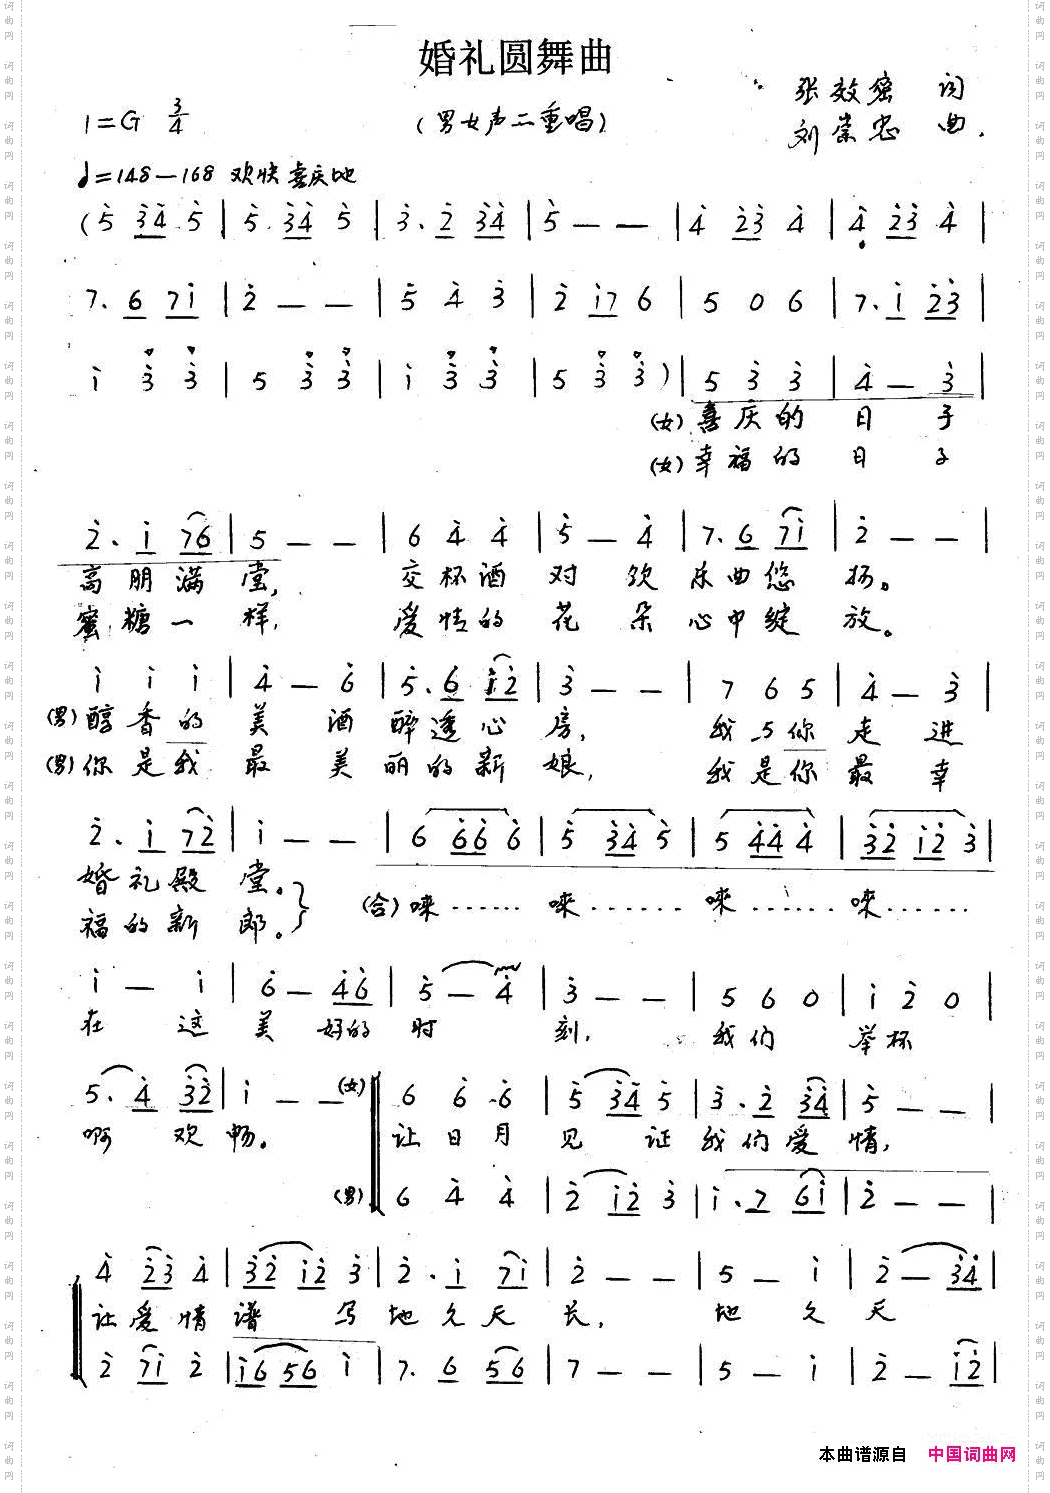 婚礼圆舞曲
张效密 词
1=G 3/4 (男女声二重唱) 刘崇忠 曲
♩=148—168 欢快喜庆地
(5̇ 3̇4̇ 5̇ | 5̇ 3̇4̇ 5̇ | 3̇. 2̇ 3̇4̇ | 5̇ — — | 4̇ 2̇3̇ 4̇ | 4̇ 2̇3̇ 4̇ |
7. 6 7i̇ | 2̇ — — | 5̇ 4̇ 3̇ | 2̇ i̇7 6 | 5 0 6 | 7. i̇ 2̇3̇ |
i̇ 3̇ 3̇ | 5 3̇ 3̇ | i̇ 3̇ 3̇ | 5 3̇ 3̇ ) | 5 3̇ 3̇ | 4̇ — 3̇ |
(女) 喜庆的 日 子
(女) 幸福的 日 子
2̇. i̇ 76 | 5 — — | 6 4̇ 4̇ | 5̇ — 4̇ | 7. 6 7i̇ | 2̇ — — |
高朋满 堂, 交杯酒 对 饮 乐曲悠 扬。
蜜糖一 样, 爱情的 花 朵 心中绽 放。
i̇ i̇ i̇ | 4̇ — 6̇ | 5̇. 6̇ i̇2̇ | 3̇ — — | 7 6 5 | 4̇ — 3̇ |
(男) 醇香的 美 酒 醉透心 房, 我与你 走 进
(男) 你是我 最 美 丽的新 娘, 我是你 最 幸
2̇. i̇ 72̇ | i̇ — — | 6 6̇6̇ 6̇ | 5̇ 3̇4̇ 5̇ | 5 4̇4̇ 4̇ | 3̇2̇ i̇2̇ 3̇ |
婚礼殿 堂。
福的新 郎。
(合) 唻…… 唻…… 唻…… 唻……
i̇ — i̇ | 6̇ — 4̇6̇ | 5̇ — 4̇ | 3̇ — — | 5 6 0 | i̇ 2̇ 0 |
在 这 美 好的 时 刻, 我们 举杯
5. 4̇ 3̇2̇ | i̇ — — (女) 6 6̇ 6̇ | 5̇ 3̇4̇ 5̇ | 3̇. 2̇ 3̇4̇ | 5̇ — — |
啊 欢 畅。 让日月 见 证 我们爱 情,
(男) 6 4̇ 4̇ | 2̇ i̇2̇ 3̇ | i̇. 7 6i̇ | 2̇ — — |
4̇ 2̇3̇ 4̇ | 3̇2̇ i̇2̇ 3̇ | 2̇. i̇ 7i̇ | 2̇ — — | 5 — i̇ | 2̇ — 3̇4̇ |
让爱情 谱 写 地久天 长, 地 久 天
2̇ 7i̇ 2̇ | i̇6 56 i̇ | 7. 6 56 | 7 — — | 5 — i̇ | 2̇ — i̇2̇ |
本曲谱源自 中国词曲网